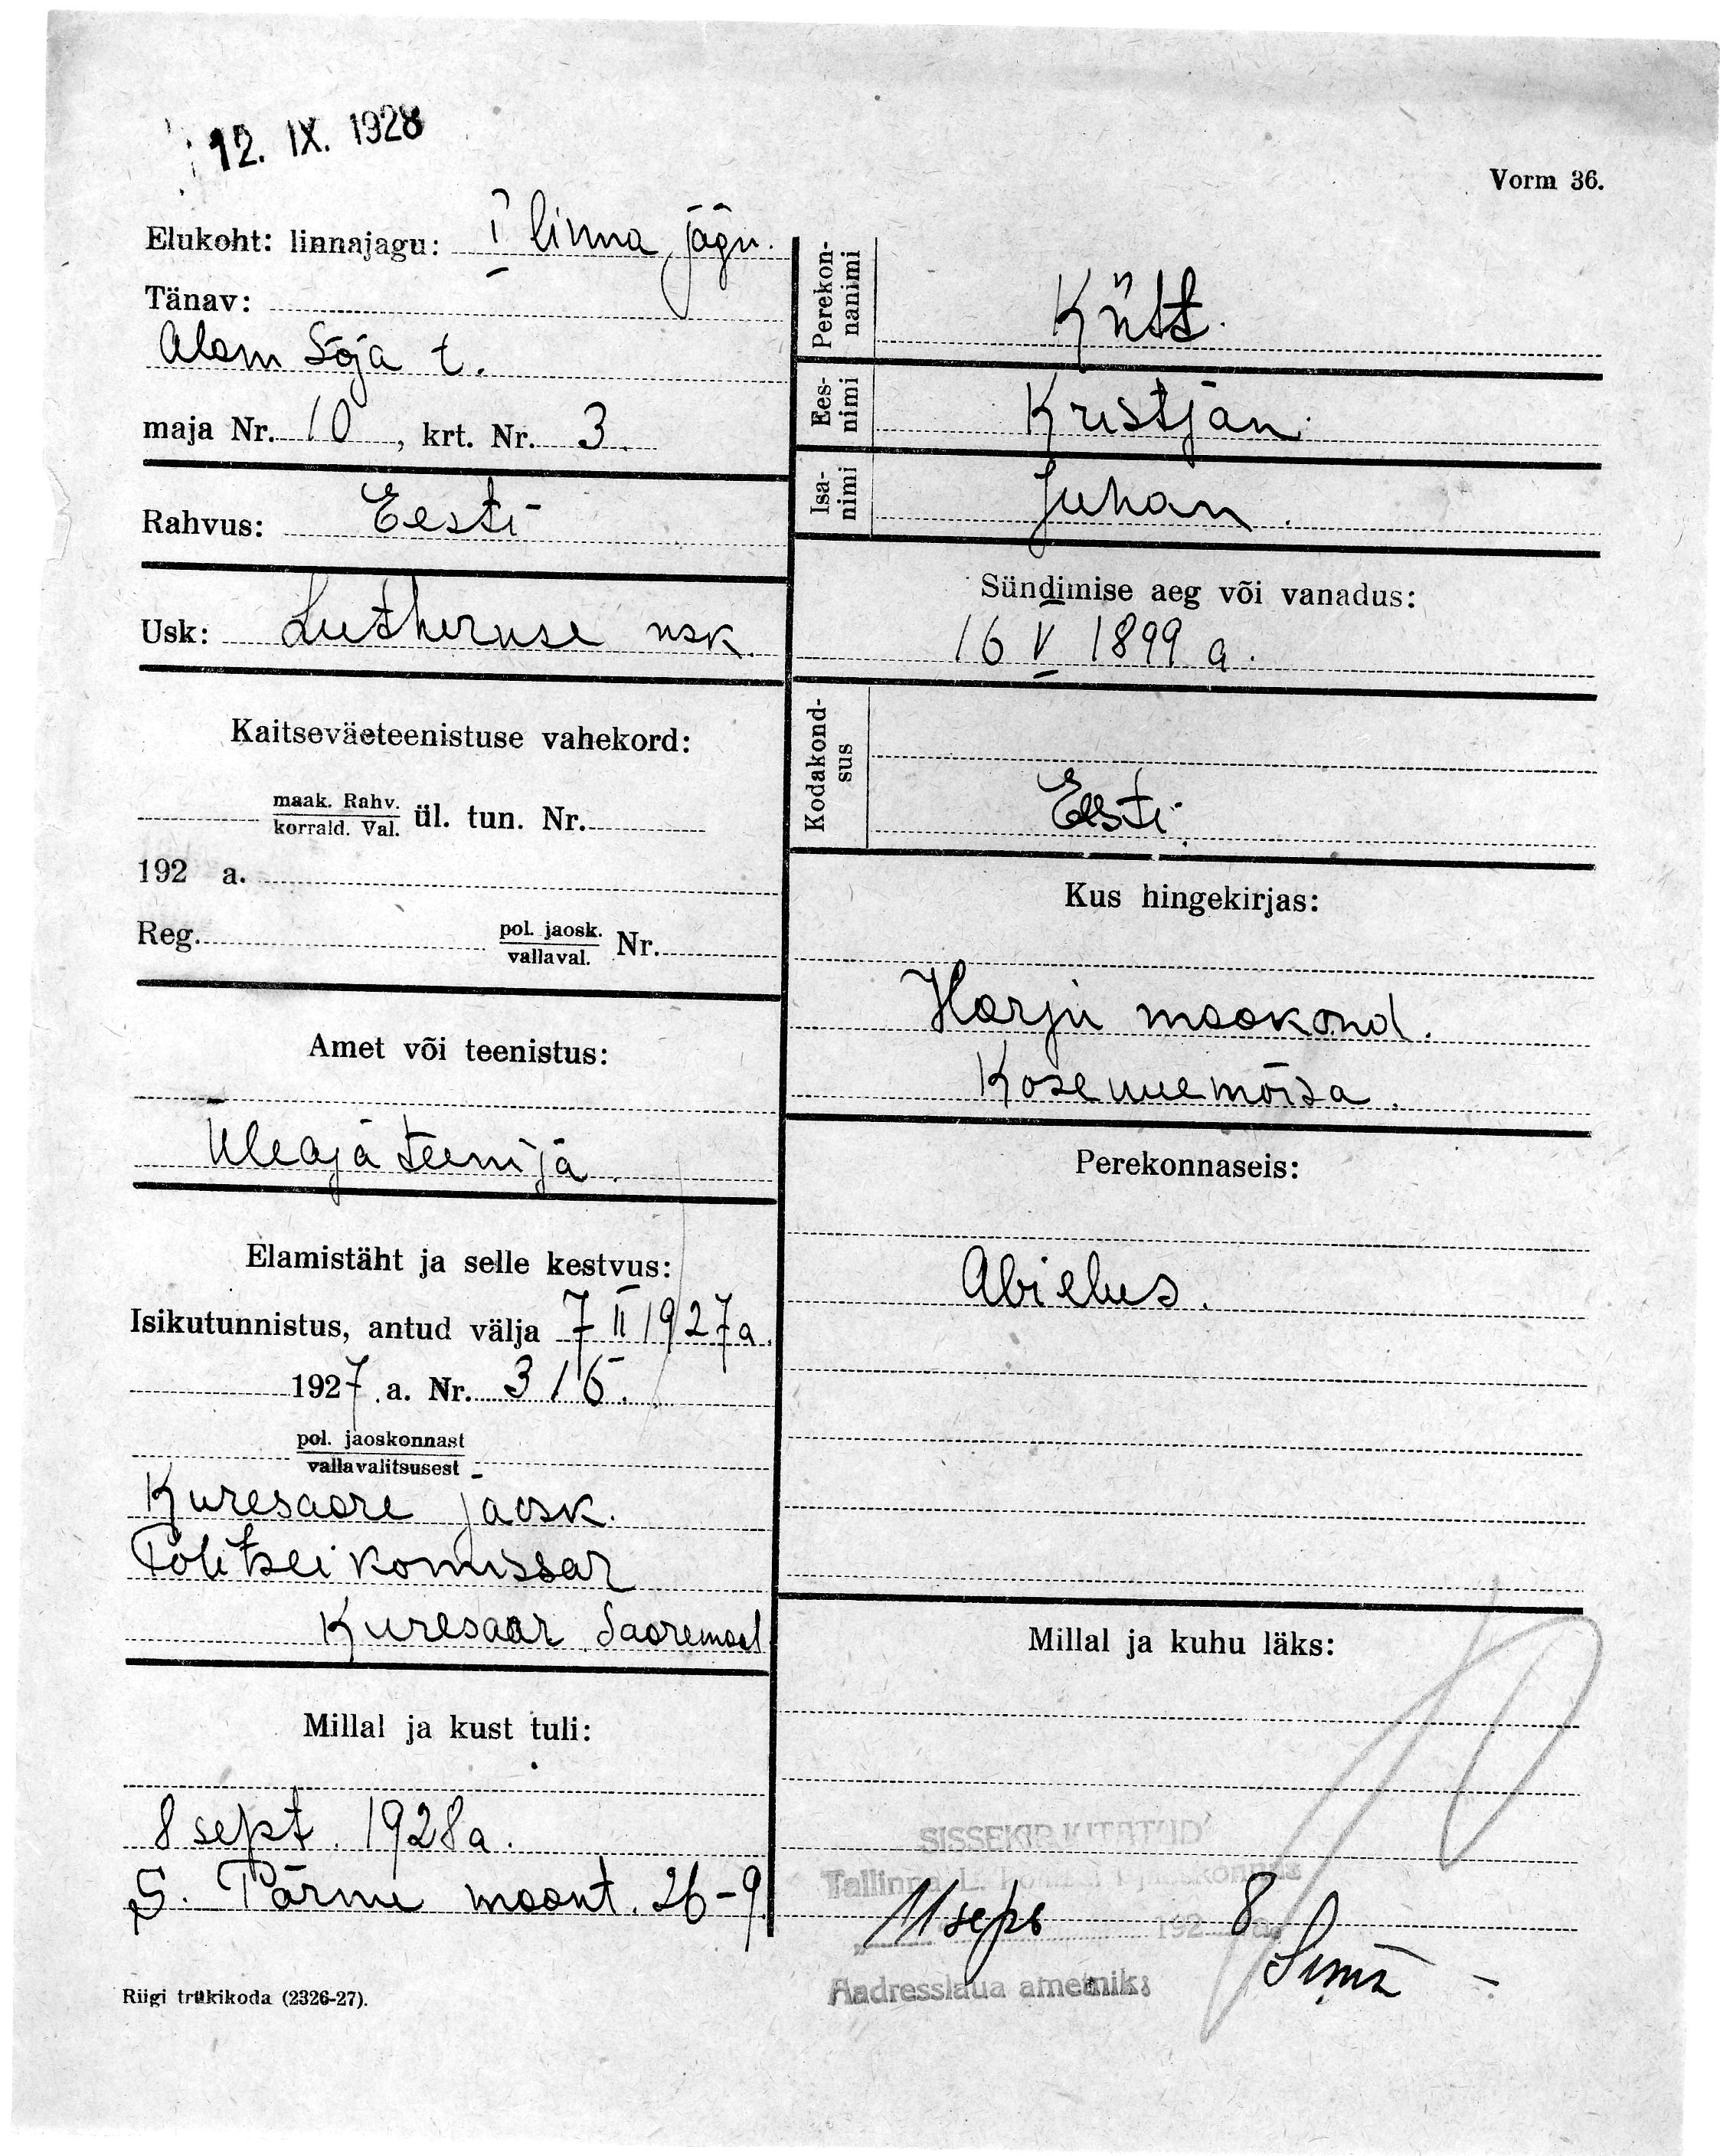 12. IX. 1928
Vorm 36.
Elukoht: linnajagu: I linna jagu.
Tänav:
Alam Sõja t.
maja Nr. 10, krt. Nr. 3.
Rahvus: Eesti
Usk: Lutheruse usk.
Kaitseväeteenistuse vahekord:
maak. Rahv.
korrald. Val. ül. tun. Nr.
192 a.
Reg. pol. jaosk.
vallaval. Nr.
Amet või teenistus:
Üleaja teenija.
Elamistäht ja selle kestvus:
Isikutunnistus, antud välja 7 II 1927 a.
1927. a. Nr. 316.
pol. jaoskonnast
vallavalitsusest
Kuresaare jaosk.
Politsei komissar
Kuresaar Saaremaal
Millal ja kust tuli:
8 sept. 1928 a.
S. Pärnu maant. 26-9
Riigi trükikoda (2326-27).
Perekonnanimi
Kütt.
Eesnimi
Kristjan.
Isanimi
Juhan.
Sündimise aeg või vanadus:
16 V 1899 a.
Kodakondsus
Eesti.
Kus hingekirjas:
Harju maakond.
Kose uuemõisa.
Perekonnaseis:
Abielus.
Millal ja kuhu läks:
SISSEKIRJUTATUD
Tallinna
11 seps 1928 a.
Aadresslaua ametnik: